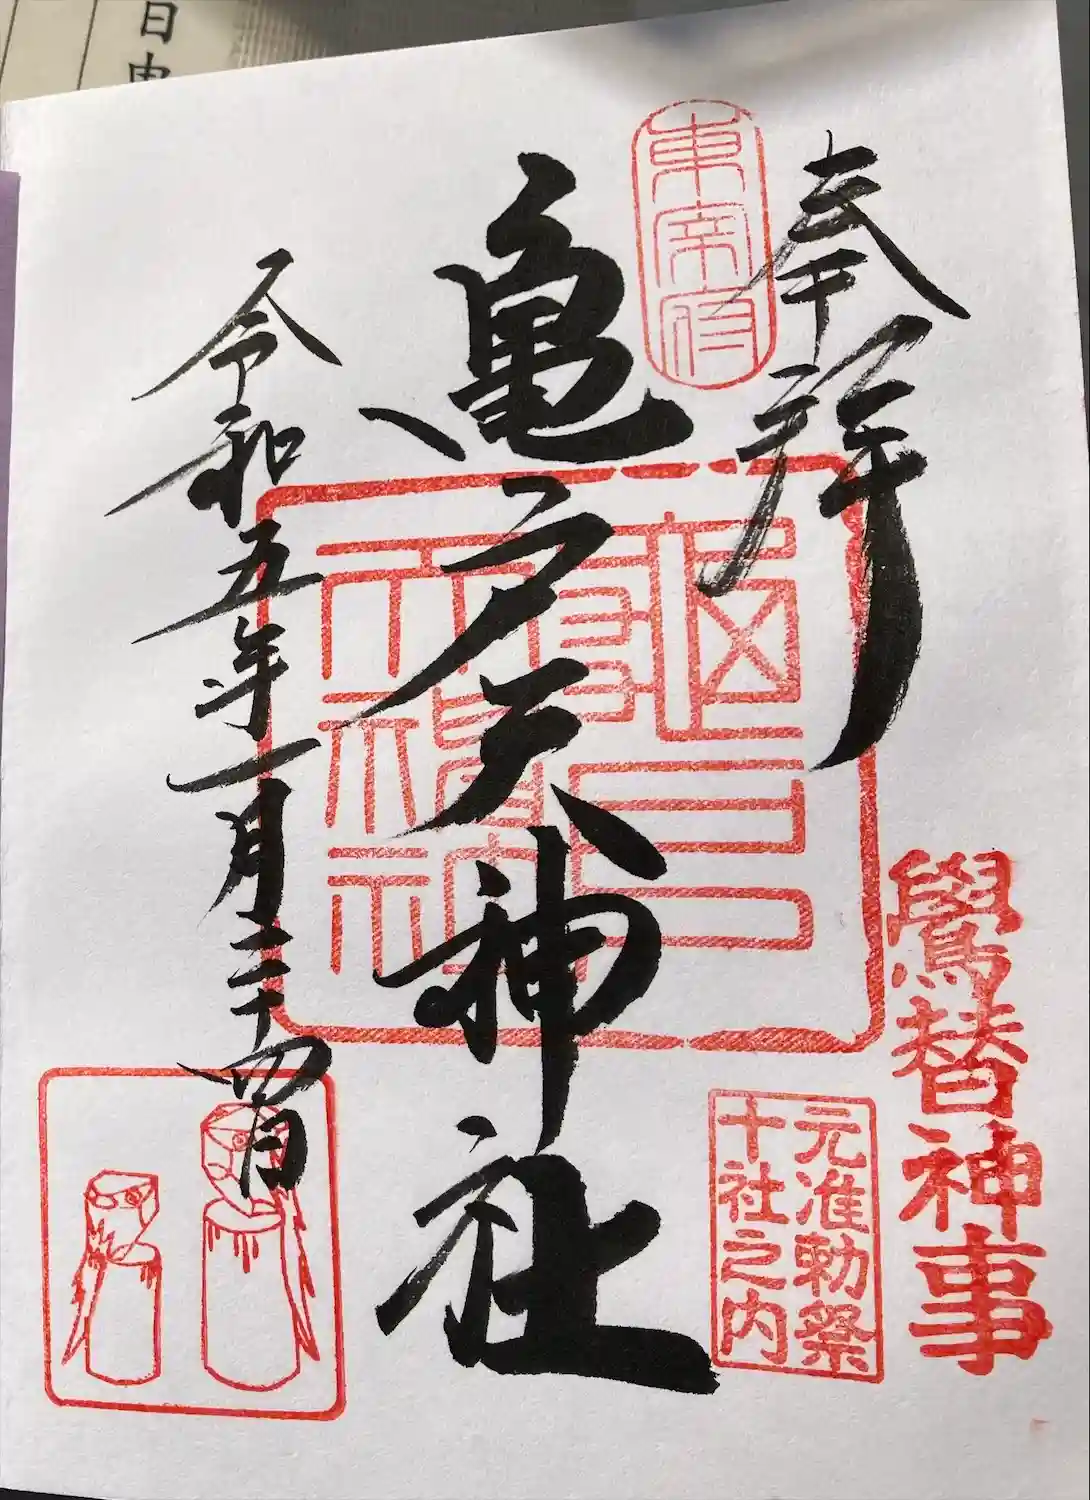 奉拝
東宰府
鷽替神事
元准勅祭
十社之内
亀戸天神社
令和五年一月二十四日